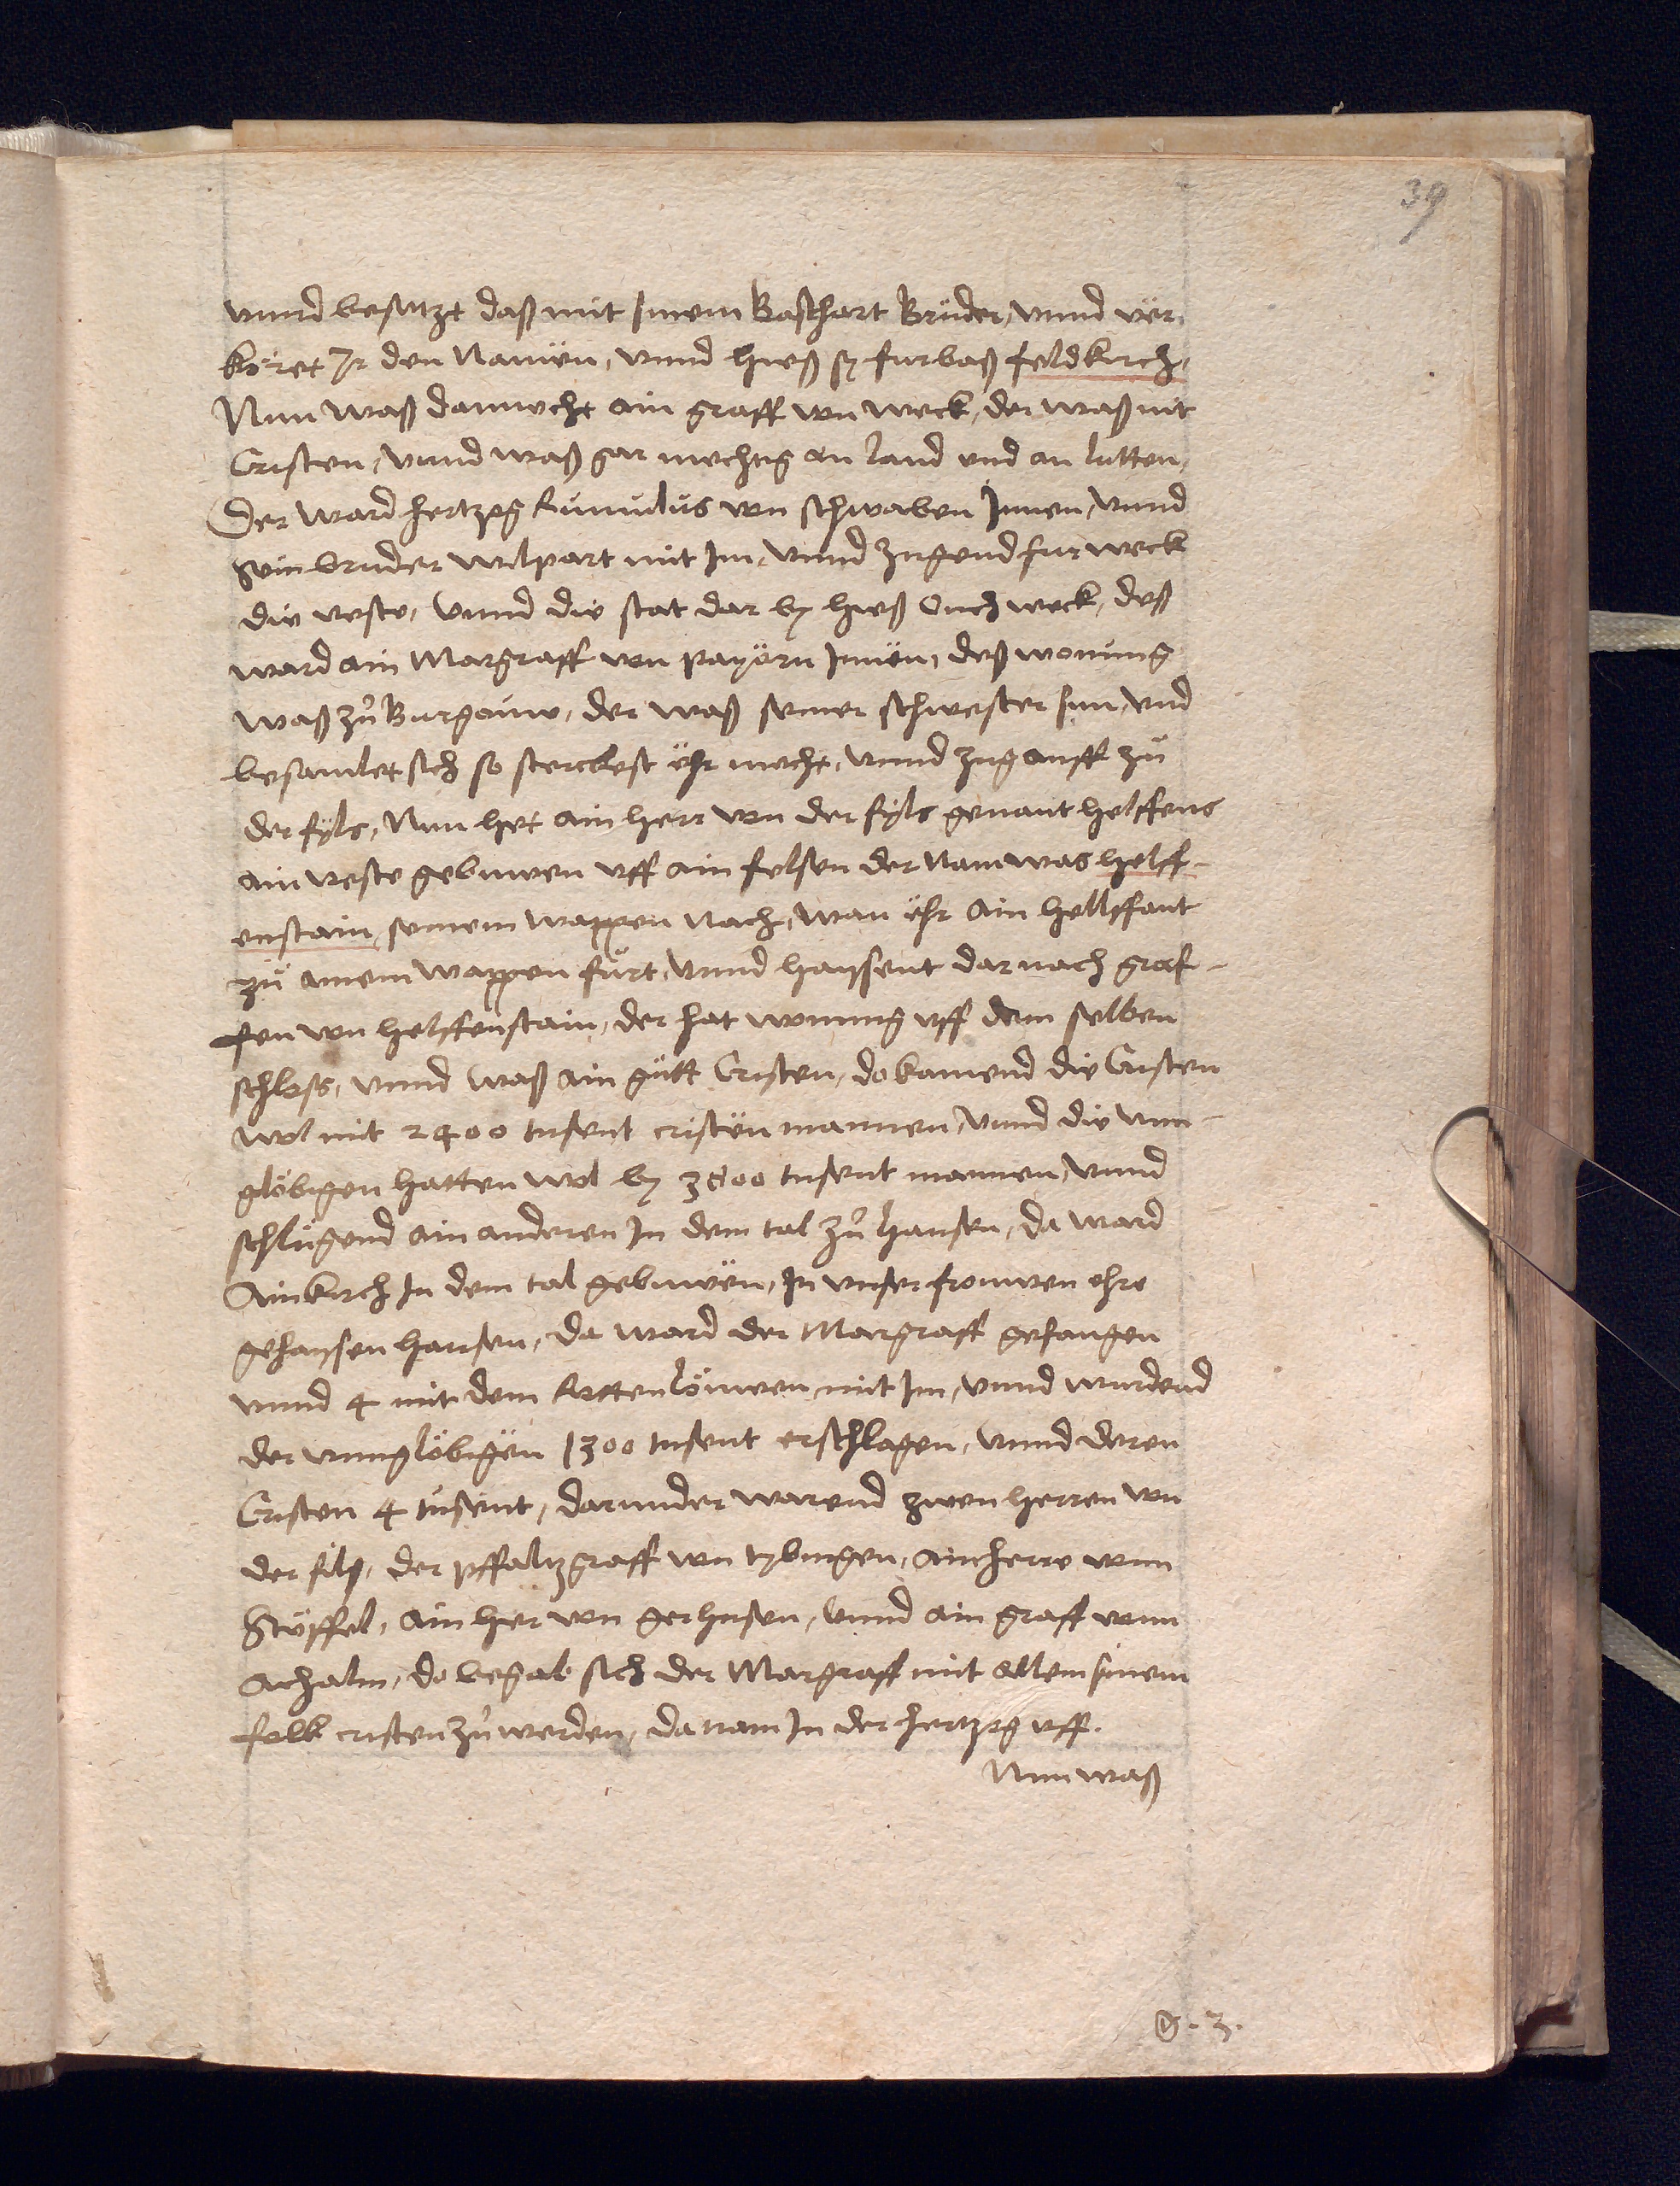 39
vnnd besatzt daß mit sinem Baschart Brüder, vnnd ver¬
köret Ir den Namen, vnnd hieß sy furbaß feldkirch,
Nun waß dannocht ain graff von weck, der waß nit
Cristen, vnnd waß gar mechtig an land vnd an lutten,
Der ward hertzog Rumulus von schwaben Innen, vnnd
Sin bruder wilpart mit Im, vnnd zugend fur weck
die veste, vnnd die stat dar by hieß Ouch weck, deß
ward ain Margraff von payörn Innen, deß wonung
waß zů Burgouw, der waß siner schwester sun, vnd
besamlet sich so sterckest ehr mocht, vnnd zug auff zů
der fyls, Nun het ain herr von der fyls genant helffens
ain veste gebuwen vff ain felsen der Nam was helff¬
enstain, sinem wappen nach, wan ehr ain hellffant
zů ainem wappen fürt, vnnd haysent darnach graf¬
fen von helffenstain, der hat wonung vff dem selben
schloss, vnnd waß ain gůtt Cristen, do kamend die Cristen
wol mit 2400 tusent cristen mannen, vnnd die vnn¬
glöbigen hatten wol by 3800 tusent mannen, vnnd
schlůgend ain anderen In dem tal zů hausen, da ward
Ain kirch In dem tal gebuwen, In vnser frouwen ehre
gehaysen hausen, da ward der Margraff gefangen
vnnd 4 mit dem Rotten löuwen mit Im, vnnd wurdend
der vnnglöbigen 1300 tusent erschlagen, vnnd deren
Cristen 4 tusent, darunder warend zwen herren von
der filß, der pffaltzgraff von tybingen, ain herre vonn
Stöffel, ain her von gerhusen, vnnd ain graff vonn
Achalm, do begab sich der Margraff mit allem sinem
folk cristen zů werden, da nam In der hertzog vff.
Nun waß
3.